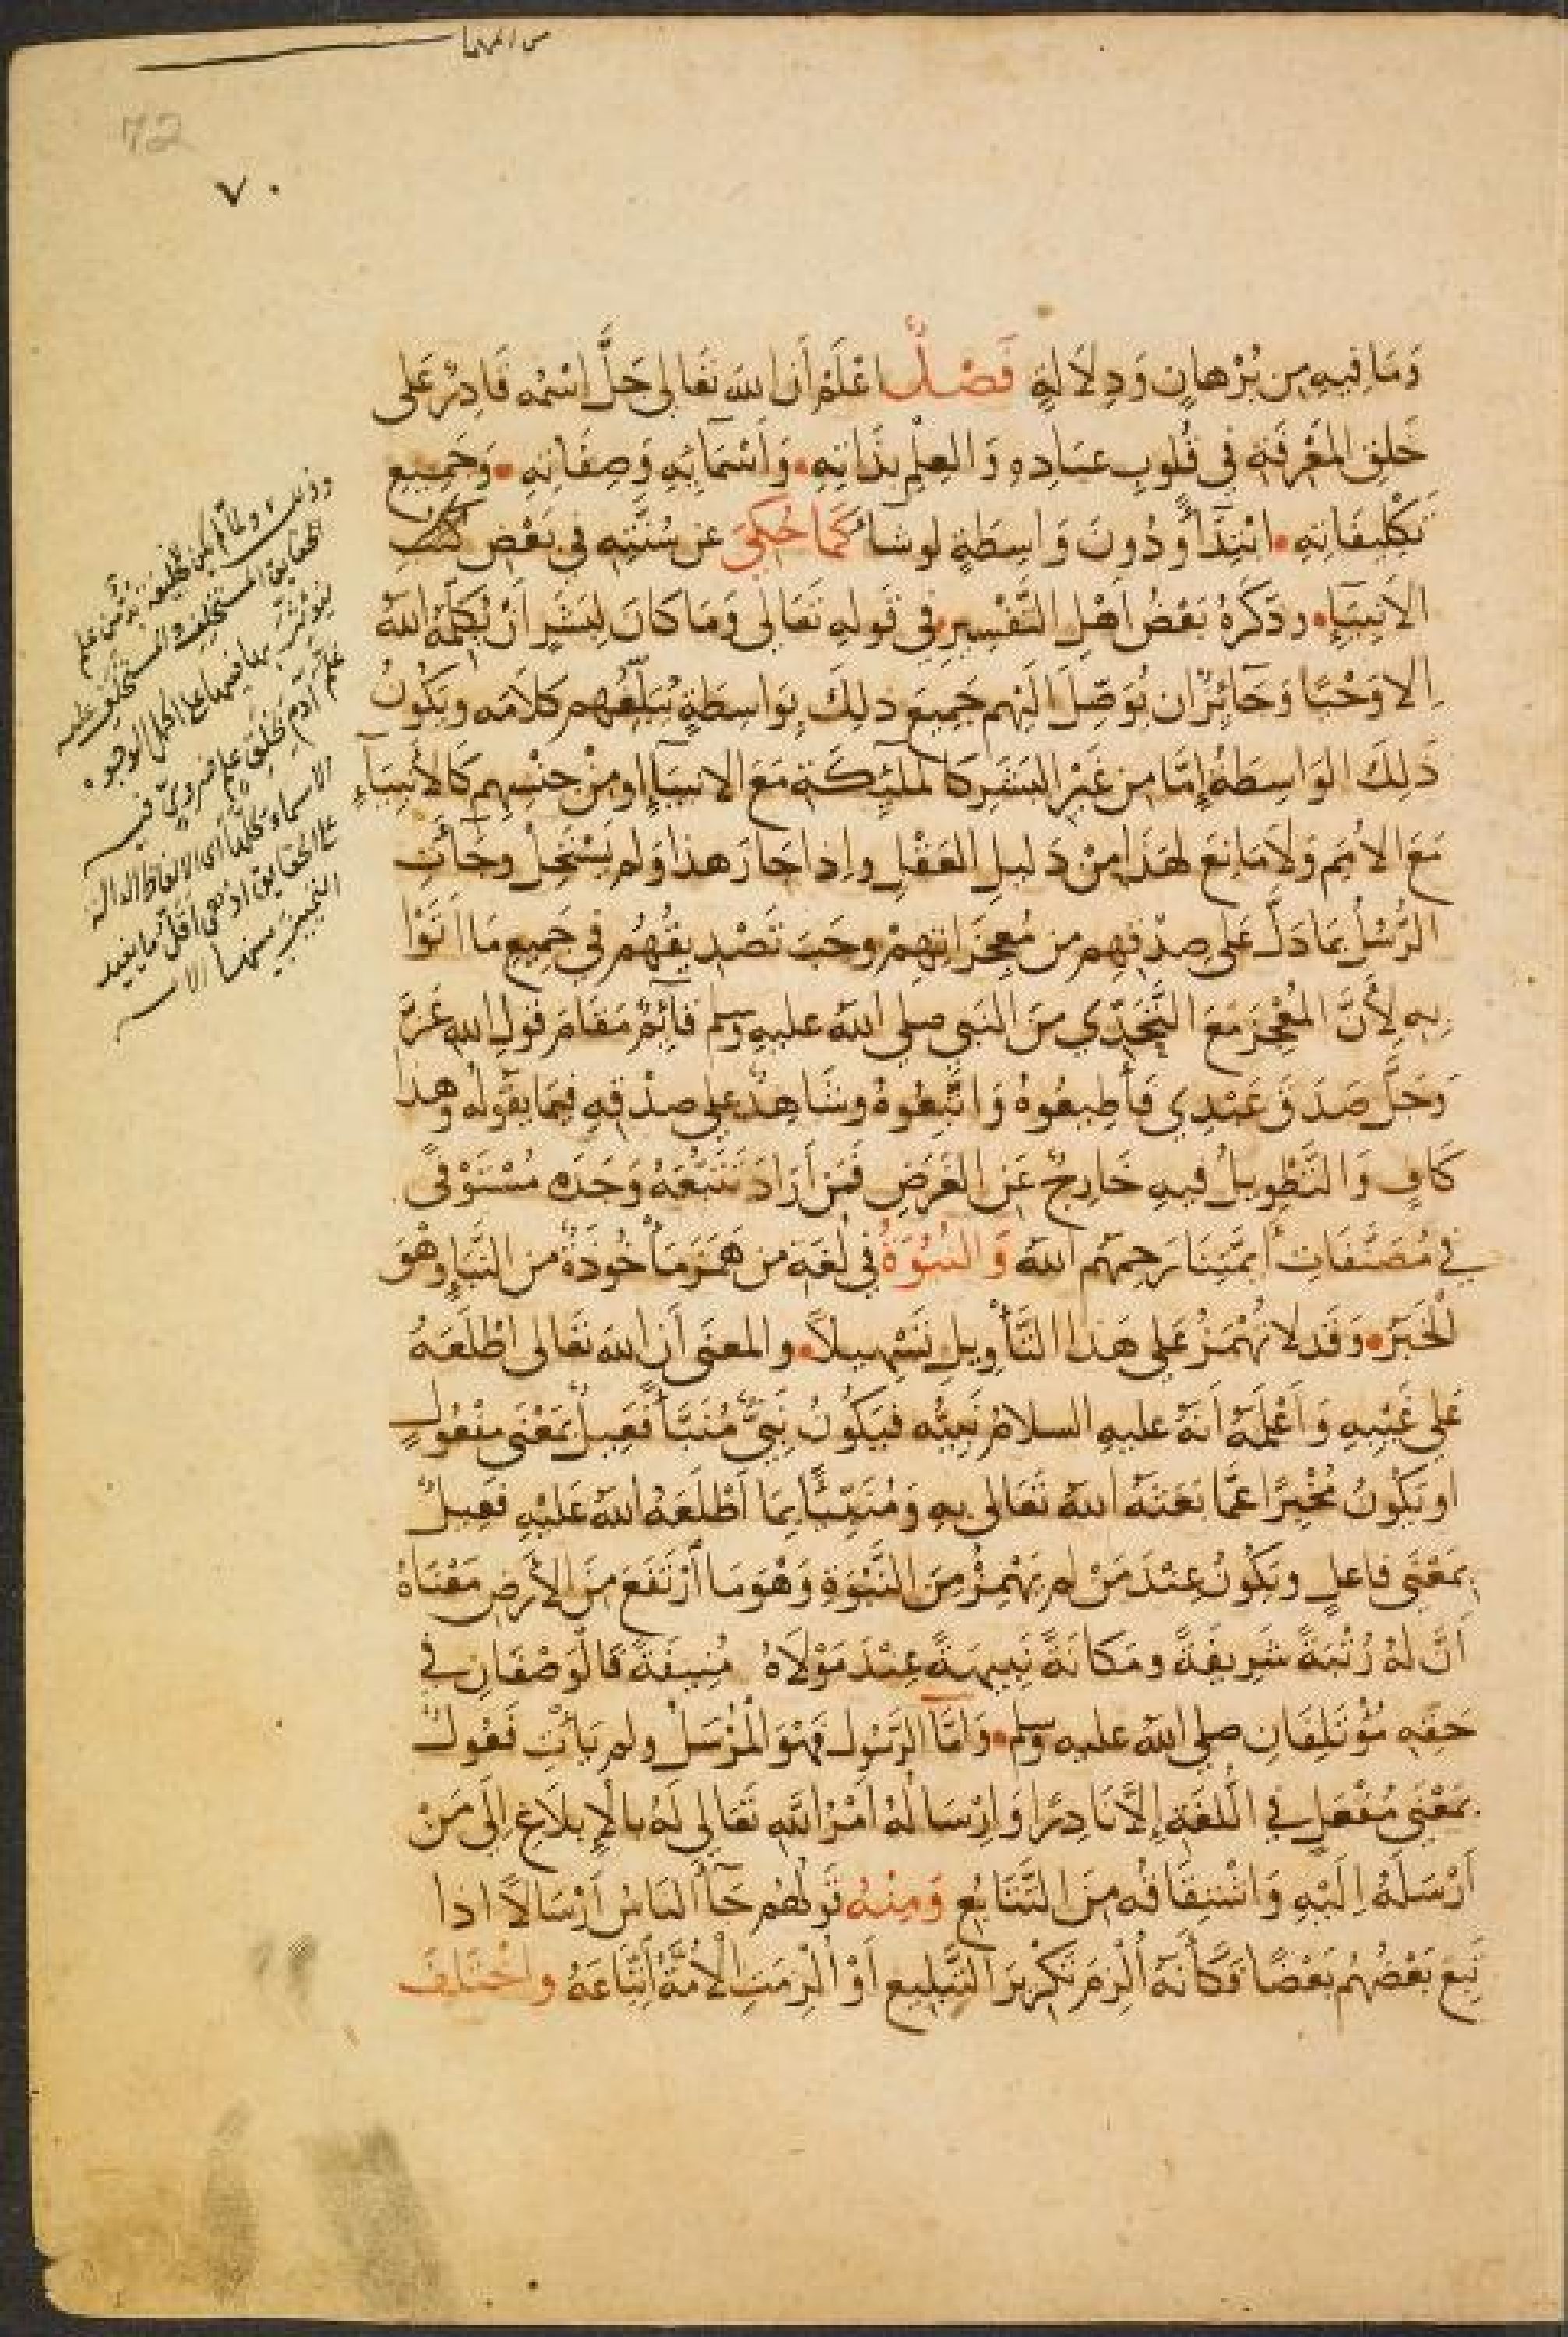 من المهمات
72
٧٠
وَمَا فِيهِ مِن بُرْهانٍ وَدِلَالَةٍ فَصْلٌ اعْلَمْ أَن الله تَعَالى جَلَّ اسْمُه قَادِرٌ عَلى
خَلقِ المَعْرِفَةِ في قُلوبِ عبَادِهِ وَالعِلْمِ بذَاتِهِ وَأَسْمَائِهِ وَصِفَاتِهِ وَجَمِيعِ
تَكْلِيفَاتِهِ ابْتِدَاءً وَدُونَ وَاسِطَةٍ لوشاء كَمَا حُكِيَ عن سُنَّتِهِ في بَعْضِ كتب
الأَنبِيَاءِ وذكَرَهُ بَعْضُ اَهْلِ التَّفْسِيرِ في قَولهِ تَعَالَى وَمَا كَانَ لِبَشَرٍ أَنْ يُكَلِّمَهُ اللهُ
إِلا وَحْيًا وَجَائِزٌ ان يُوَصِّلَ الَيْهِم جَمِيعَ ذلِكَ بِوَاسِطَةٍ تُبَلِّغُهم كَلَامَه وَيَكُونُ
ذَلِكَ الوَاسِطَةُ إِمَّا مِن غَيْرِ البَشَرِ كَالملَئِكَةِ مَعَ الانبيَاءِ او مِنْ جِنْسِهِم كَالأَنبِيَاءِ
مَعَ الأُمَمِ وَلَا مَانِعَ لهَذَا مِنْ دَلِيلِ العَقْلِ واِذا جَازَ هذا وَلَم يَسْتَحِلْ وجَاءَتِ
الرُّسُلُ بِمَا دَلَّ عَلى صِدْقِهِم من مُعجِزَاتِهِمْ وجَبَ تَصْدِيقُهُم في جَميعِ مَا اَتَوْا
بِهِ لِأَنَّ المُعْجِزَ مَعَ التَّحَدِّي مِنَ النَبِي صلى الله عليه وسلم قائِمٌ مَقَامَ قَولِ اللهِ عَزَّ
وَجَلَّ صَدَقَ عَبْدِي فَأطِيعُوهُ وَاتَّبِعُوهُ وشَاهِدٌ عَلى صِدْقِهِ فيمَا يَقُوله وهذا
كَافٍ وَالتَّطْوِيلُ فيهِ خَارِجٌ عَنِ الغَرَضِ فَمَن أَرَادَ تَتَبُّعَهُ وَجَدَه مُسْتَوْفًى
في مُصَنَّفَاتِ أَئمَّتِنَا رَحِمَهُم اللهُ وَالنُبُوَّةُ في لُغَةِ من هَمَزَ مَأْخُوذَةٌ من النَّبَإِ وهْوَ
الْخَبَرُ وَقَد لا تُهْمَزُ عَلى هَذا التَّأْوِيلِ تَسْهِيلاً والمعنَى أَن الله تَعَالى اطْلَعَهُ
عَلى غَيْبِهِ وَأَعْلَمَهُ اَنَهُ عليهِ السلامُ نَبِيُّه فَيَكُونُ نَبِيٌّ مُنَبَّأٌ فَعِيلٌ بمَعْنَى مَفْعُولٍ
او يَكُونُ مُخْبِرًا عَمَّا بَعَثَهُ اللهُ تَعَالى بِهِ وَمُنَبِّئًا بمَا أَطْلَعَهُ اللهُ عَلَيْهِ فَعِيلٌ
بمَعْنَى فاعلٍ وَيَكُونُ عِنْدَ مَنْ لم يَهْمِزْ مِنَ النَّبْوَةِ وَهْوَ مَا ارْتَفَعَ مِنَ الأَرضِ مَعْنَاهُ
أَنَّ لهُ رُتْبَةً شَرِيفَةً ومَكَانَةً نَبِيهَةً عِنْدَ مَوْلَاهُ مُنِيفَةً فَالْوَصْفَانِ في
حَقِّهِ مُؤْتَلِفَانِ صلى الله عليه وسلم وَأَمَّا الرَّسُول فَهْوَ الْمُرْسَلُ ولم يَأتِ فَعُولٌ
بمَعْنَى مُفْعَلٍ في اللُّغَةِ إِلاَّ نَادِرًا وَاِرْسَالُهُ أمْرُ اللهِ تَعَالى لَهُ بالْإِبلَاغِ إِلَى مَنْ
أَرْسَلَهُ إِلَيْهِ وَاشْتِقَاقُه مِنَ التَّتَابُعِ وَمِنْهُ قَولُهُم جَاءَ النَاسُ أَرْسَالاً اذا
تَبِعَ بَعْضُهُم بَعْضًا فَكَأَنَهُ أُلْزِمَ تَكْرِيرَ التَّبْلِيغِ أَوْ أُلْزِمَتِ الْأُمَّةُ اتِّبَاعَهُ واخْتَلَفَ
وذلك ولما لم يكن للخليفة بد من علم
الحقايق المستخلف والمستخلف عليه
الاسماء كلها اى الالفاظ الدالة
على الحقايق اذ هى اقل ما يفيد
التمييز بينها